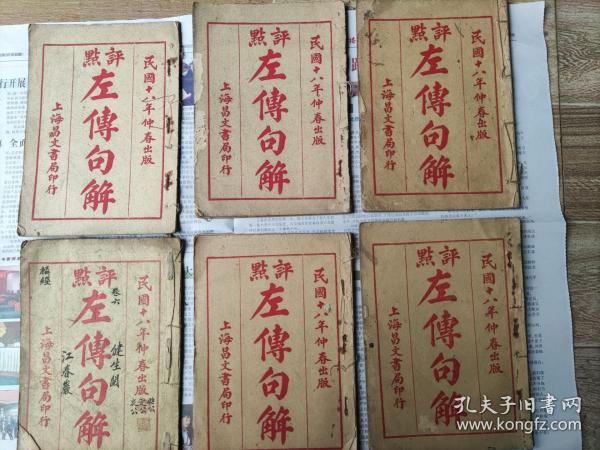 民國十八年仲春出版
評點
左傳句解
上海昌文書局印行
民國十八年仲春出版
評點
左傳句解
上海昌文書局印行
民國十八年仲春出版
評點
左傳句解
上海昌文書局印行
民國十八年仲春出版
健生閱
卷六
評點
左傳句解
江春嚴
上海昌文書局印行
民國十八年仲春出版
評點
左傳句解
上海昌文書局印行
民國十八年仲春出版
評點
左傳句解
上海昌文書局印行
孔夫子旧书网
www.kongfz.com